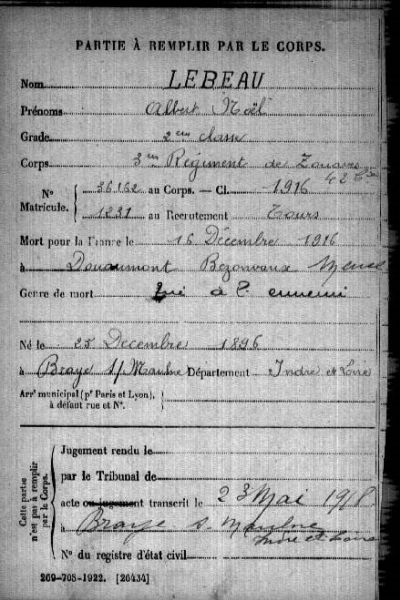 PARTIE À REMPLIR PAR LE CORPS.
Nom LEBEAU
Prénoms Albert Noël
Grade 2eme classe
Corps 3me Régiment de Zouaves
N° Matricule. 36162 au Corps. — Cl. 1916
1231 au Recrutement Tours
Mort pour la France le 16 Décembre 1916
à Douaumont Bezonvaux Meuse
Genre de mort Tué à l'ennemi
Né le 25 Decembre 1896
à Braye s/Maulne Département Indre et Loire
Arr' municipal (p' Paris et Lyon),
à défaut rue et N°.
Cette partie n'est pas à remplir par le Corps.
Jugement rendu le
par le Tribunal de
acte ou jugement transcrit le 23 Mai 1918
à Braye s. Maulne
Indre et Loire
N° du registre d'état civil
269-708-1922. [26434]